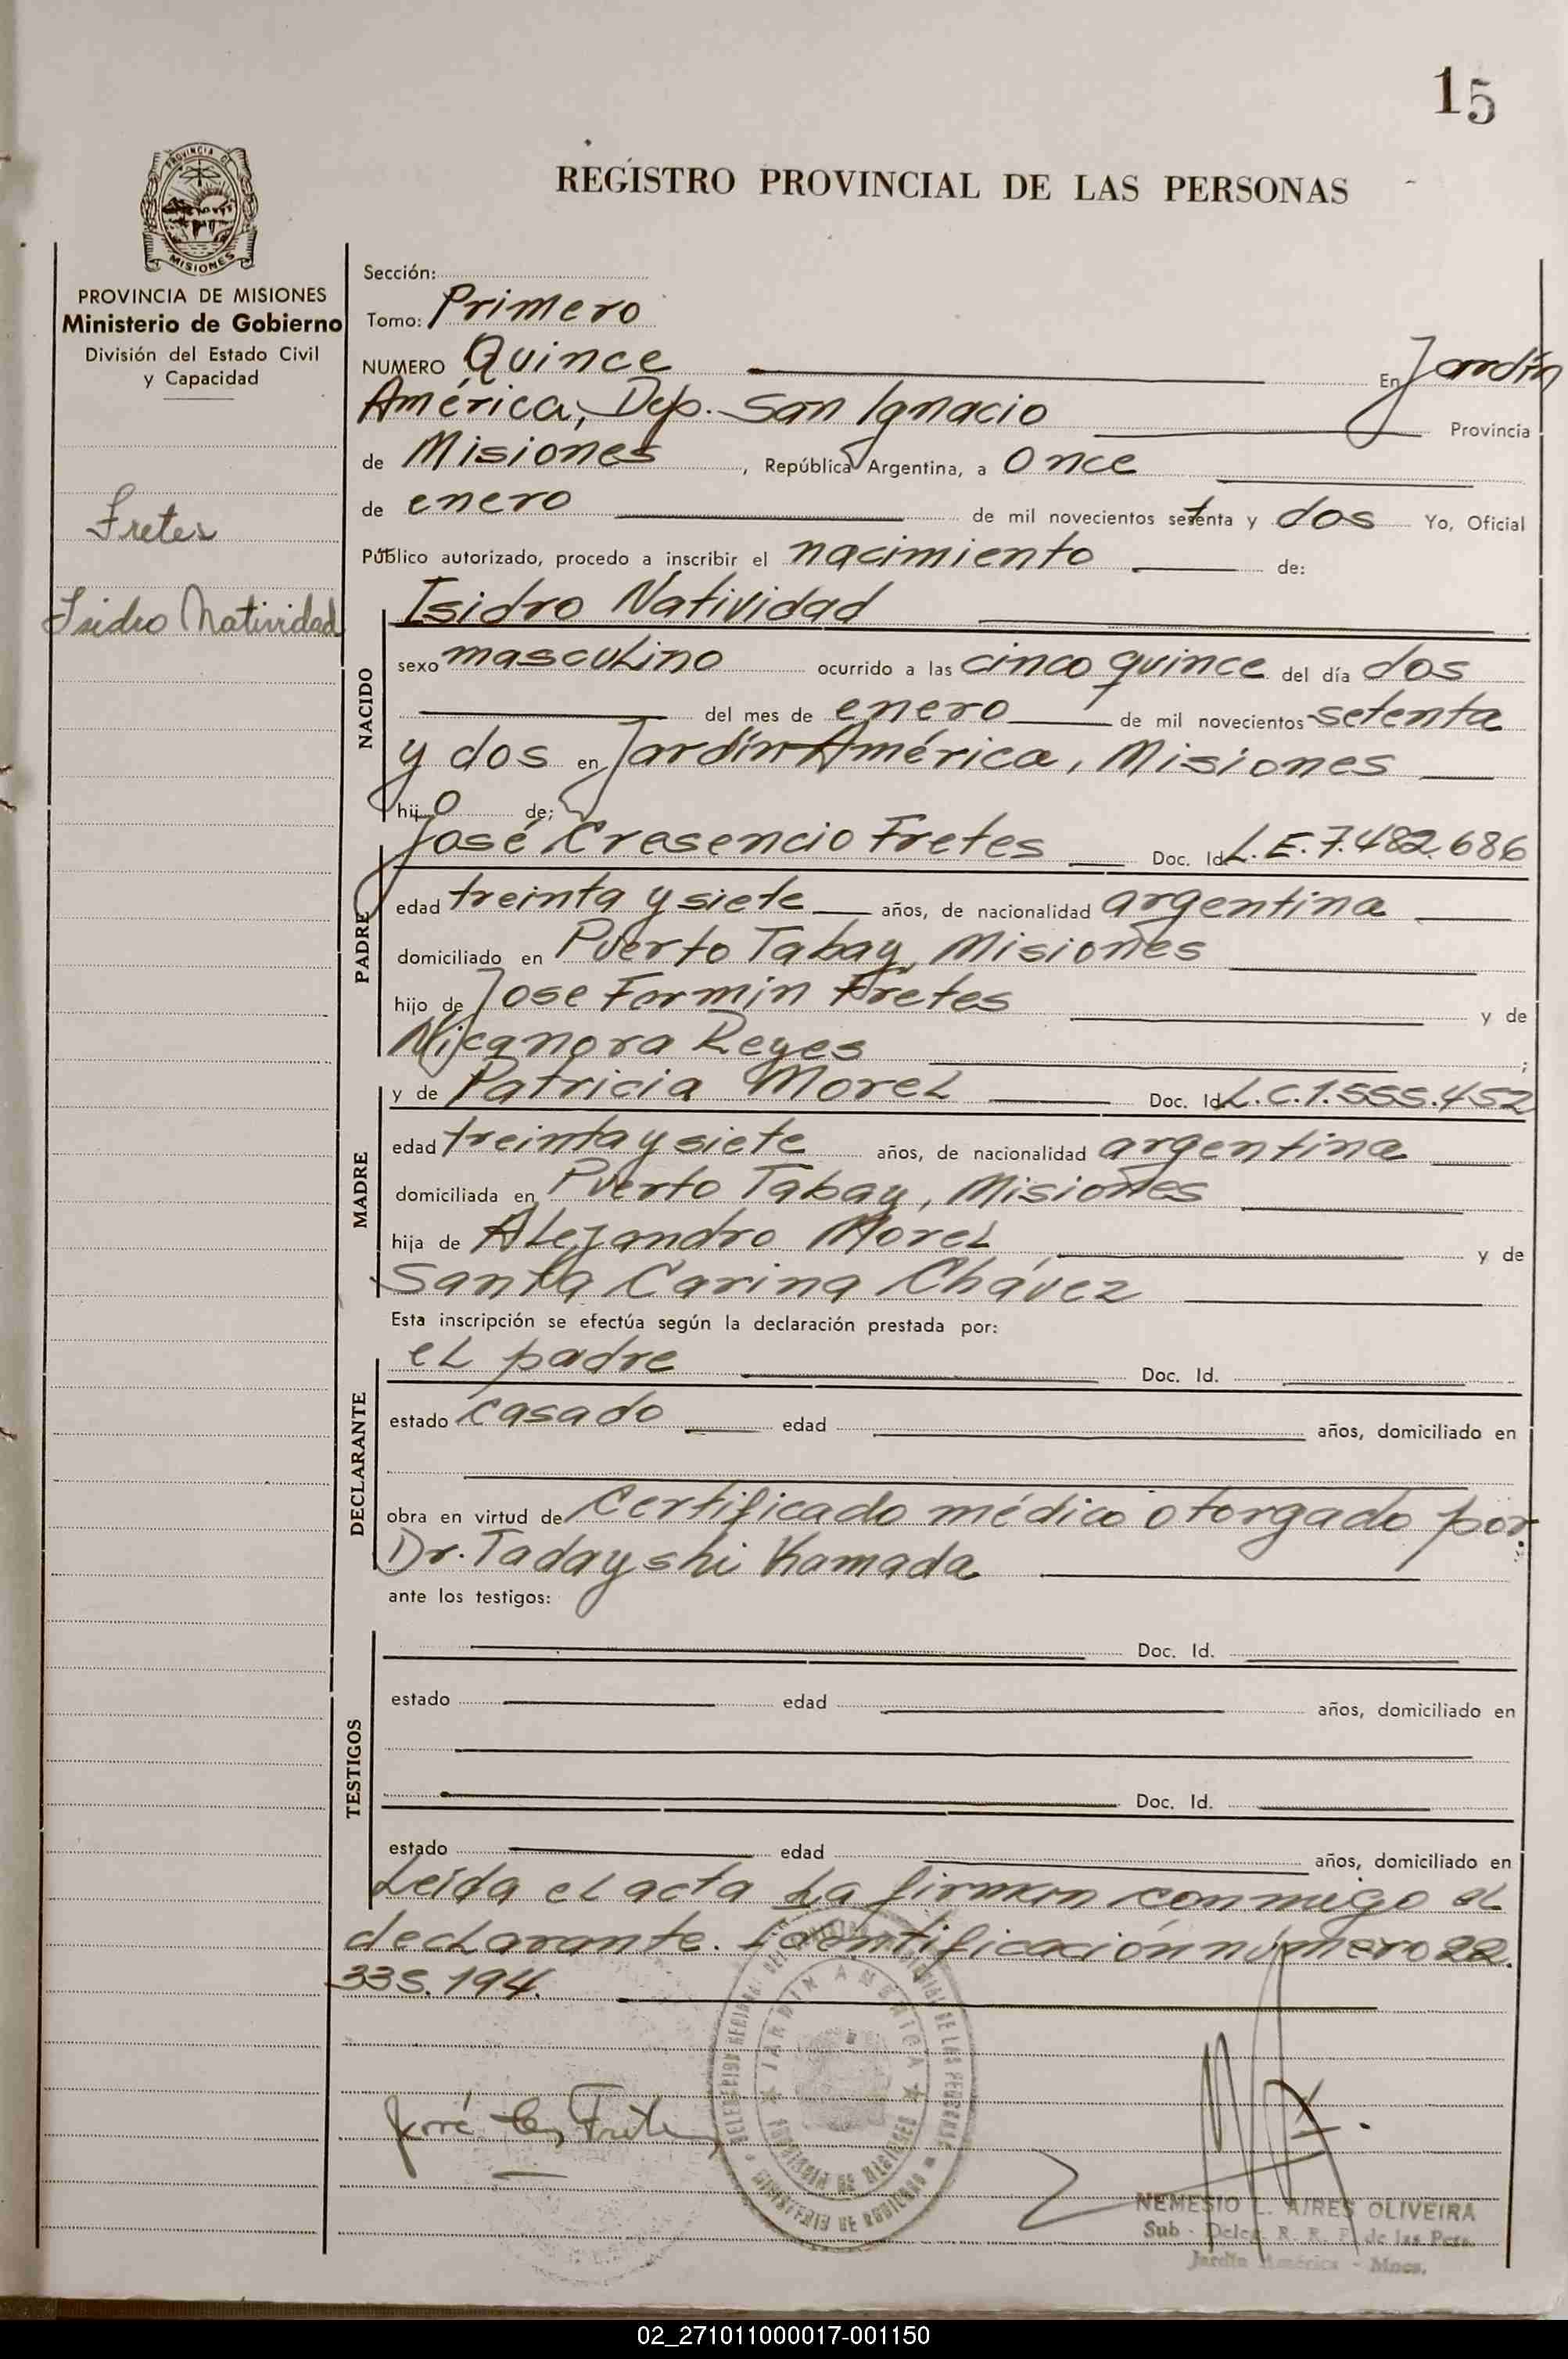 15
REGISTRO PROVINCIAL DE LAS PERSONAS
PROVINCIA DE
MISIONES
PROVINCIA DE MISIONES
Ministerio de Gobierno
División del Estado Civil
y Capacidad
Fretes
Isidro Natividad
Sección:
Tomo: Primero
NUMERO Quince En Jardín
América, Dep. San Ignacio Provincia
de Misiones, República Argentina, a Once
de enero de mil novecientos setenta y dos Yo, Oficial
Público autorizado, procedo a inscribir el nacimiento de:
Isidro Natividad
NACIDO
sexo masculino ocurrido a las cinco quince del día dos
del mes de enero de mil novecientos setenta
y dos en Jardín América, Misiones
hijo de;
PADRE
José Cresencio Fretes Doc. Id. L.E. 7.482.686
edad treinta y siete años, de nacionalidad argentina
domiciliado en Puerto Tabay, Misiones
hijo de Jose Formin Fretes y de
Nicanora Reyes ;
MADRE
y de Patricia Morel Doc. Id. L.C. 1.555.452
edad treinta y siete años, de nacionalidad argentina
domiciliada en Puerto Tabay, Misiones
hija de Alejandro Morel y de
Santa Carina Chávez
Esta inscripción se efectúa según la declaración prestada por:
DECLARANTE
el padre Doc. Id.
estado casado edad años, domiciliado en
obra en virtud de Certificado médico otorgado por:
Dr. Tadayshi Kamada
ante los testigos:
TESTIGOS
Doc. Id.
estado edad años, domiciliado en
Doc. Id.
estado edad años, domiciliado en
Leída el acta la firman conmigo el
declarante. Identificación número 22.
335.194.
JARDIN AMERICA
PROVINCIA DE MISIONES
MINISTERIO DE GOBIERNO
José Fretes
NEMESIO L. AIRES OLIVEIRA
Sub - Deleg. R. R. P. de las Pers.
Jardín América - Mnes.
02_271011000017-001150